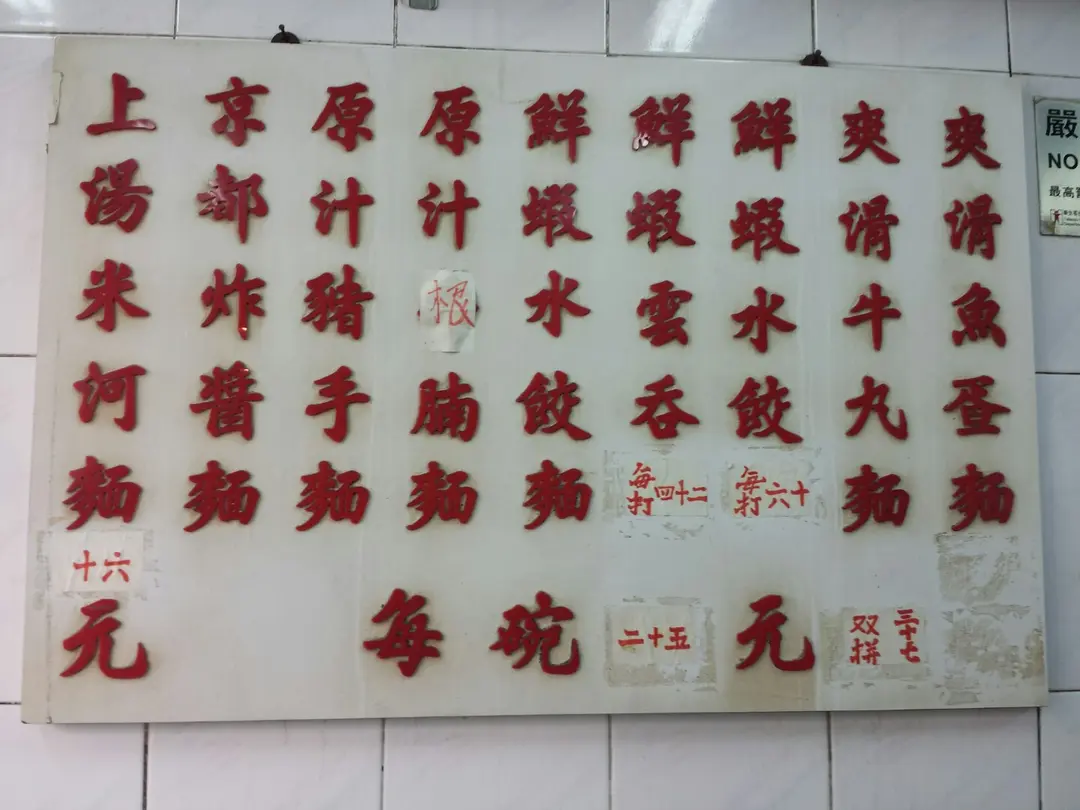 上湯米河麵
十六
元
京都炸醬麵
原汁豬手麵
原汁根腩麵
鮮蝦水餃麵
鮮蝦雲吞
每打四十二
鮮蝦水餃
每打六十
爽滑牛丸麵
爽滑魚蛋麵
每碗二十五元
双拼
三十七
嚴
NO
最高